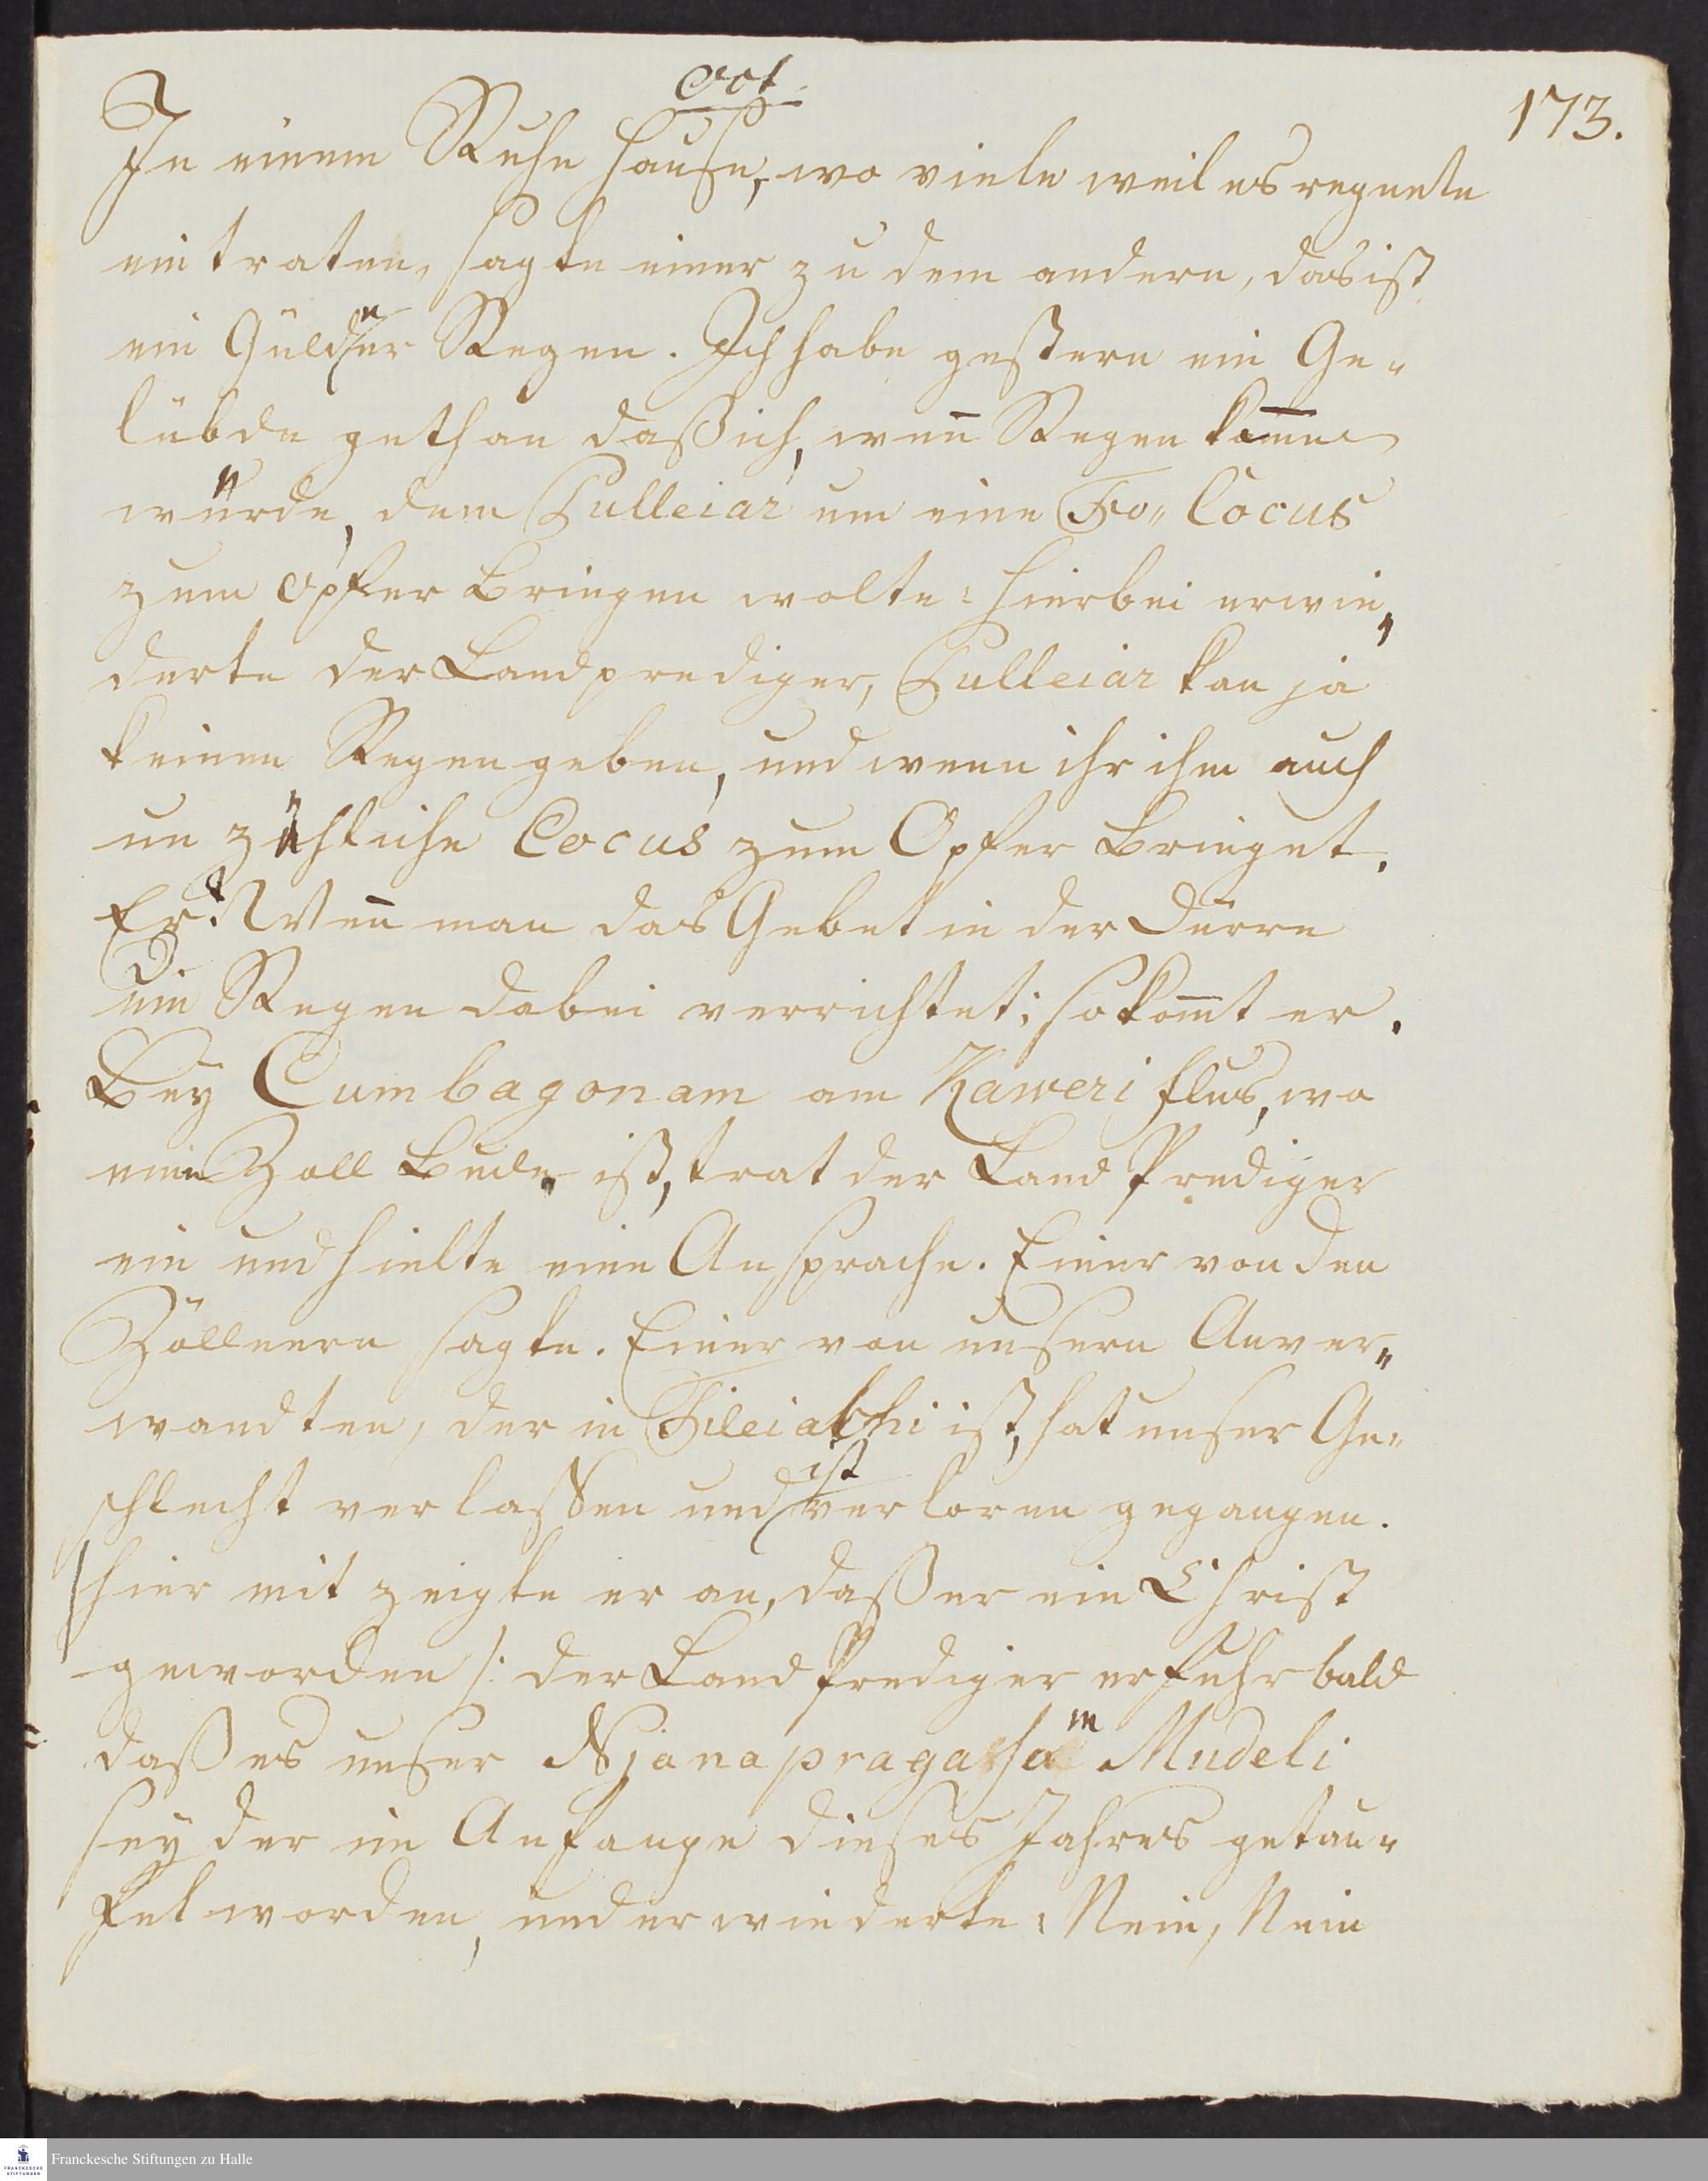 Oct.
173.
In einem Ruhe Hause, wo viele weil es regnete
ein traten, sagte einer zu dem andern, das ist
ein Güldner Regen. Ich habe gestern ein Ge-
lübde gethan daß ich, weñ Regen kom̃en
würde, dem Pulleiar um eine Cocus
zum Opfer bringen wolte: hierbei erwie„
derte der Landprediger, Pulleiar kan ja
keinen Regen geben, und wenn ihr ihm auch
un zähliche Cocus zum Opfer bringet.
Er: Weñ man das Gebet in der Dürre
um Regen dabei verrichtet; so kom̃t er.
D.
Bey Cumbagonam am Kaweri flus, wo
eine Zoll Bude ist, trat der Land Prediger
ein und hielte eine Ansprache. Einer von den
Zöllnern sagte. Einer von unsern Anver„
wandten, der in Tileiabhi ist, hat unser Ge-
schlecht verlassen und ist verloren gegangen.
hier mit zeigte er an, daß er ein Christ
geworden /: der Land Prediger erfuhr bald
daß es unser Njanapragasam Mudeli
sey der im Anfange dieses Jahres getau-
fet worden, und erwiederte: Nein, Nein
FRANCKESCHE STIFTUNGEN
Franckesche Stiftungen zu Halle